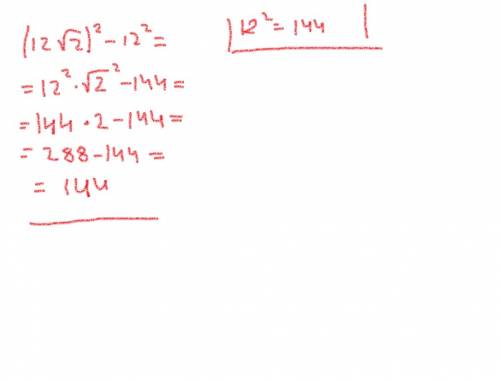 (12√2)² - 12² =
= 12² · √2² - 144 =
= 144 · 2 - 144 =
= 288 - 144 =
= 144
12² = 144